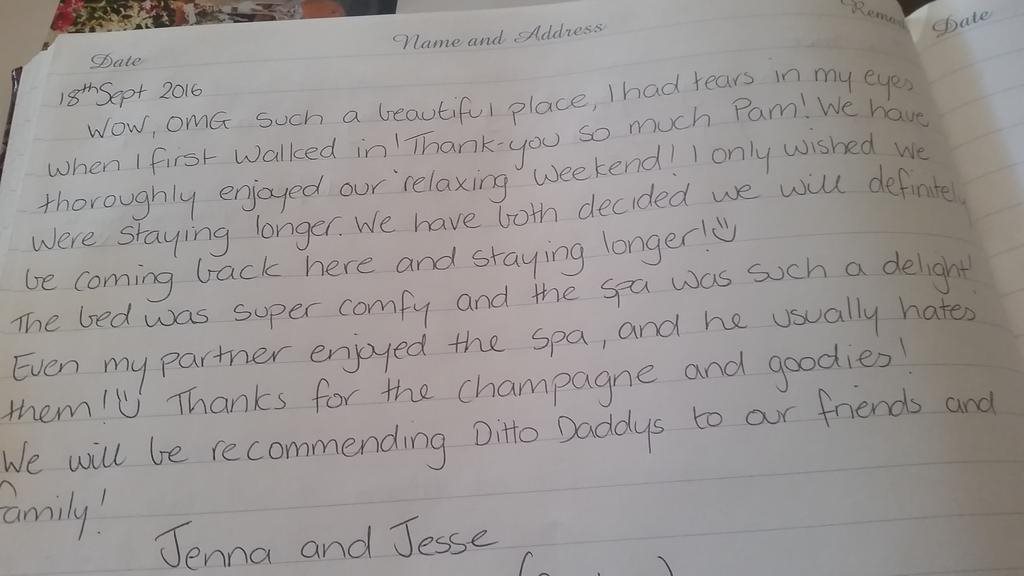 Date
Name and Address
Date
18th Sept 2016
Wow, OMG such a beautiful place, I had tears in my eyes
when I first walked in! Thank-you so much Pam! We have
thoroughly enjoyed our relaxing weekend! I only wished we
were staying longer. We have both decided we will definitely
be coming back here and staying longer! :)
The bed was super comfy and the spa was such a delight!
Even my partner enjoyed the spa, and he usually hates
them! :) Thanks for the champagne and goodies!
We will be recommending Ditto Daddys to our friends and
family!
Jenna and Jesse